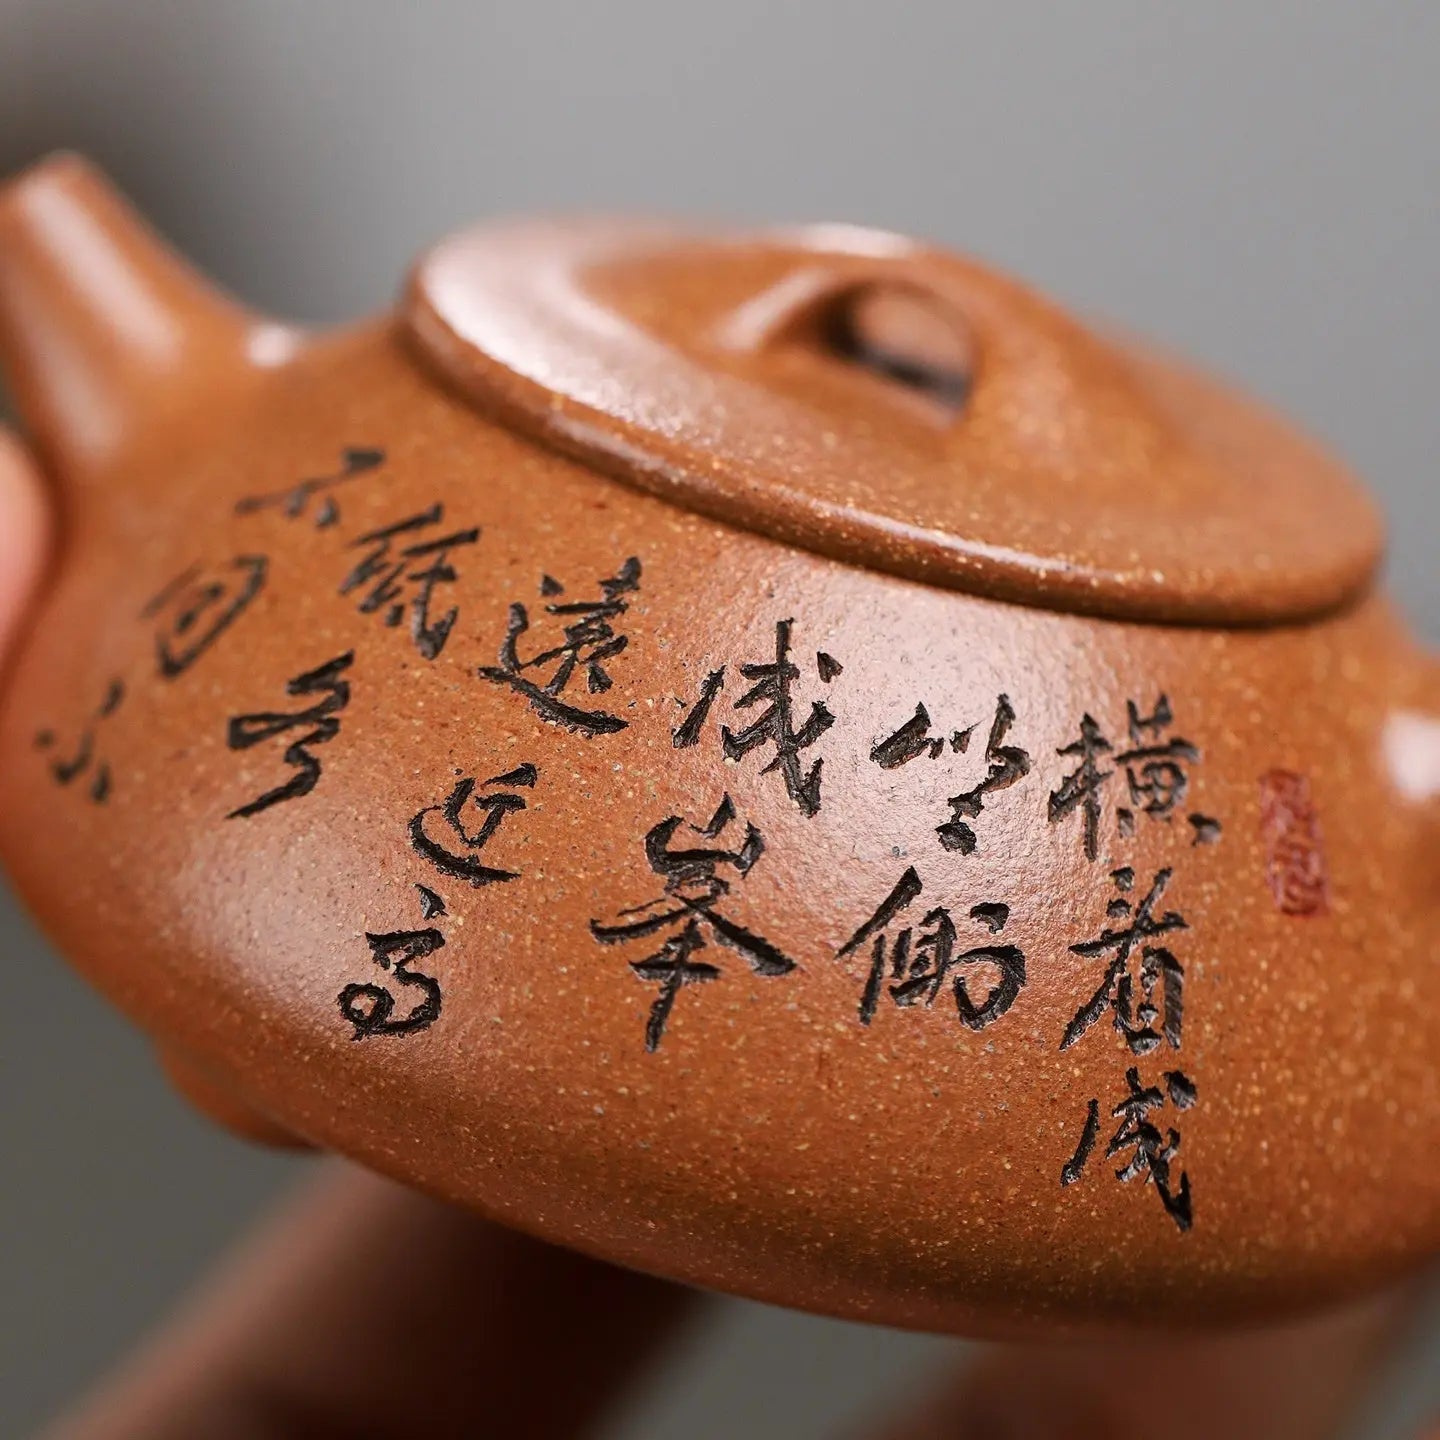 横看成
嶺側
成峯
遠近高
低各
不同
不